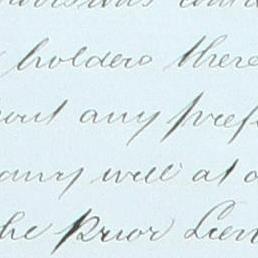 holders there
out any pref
any will at o
the Prior Lien